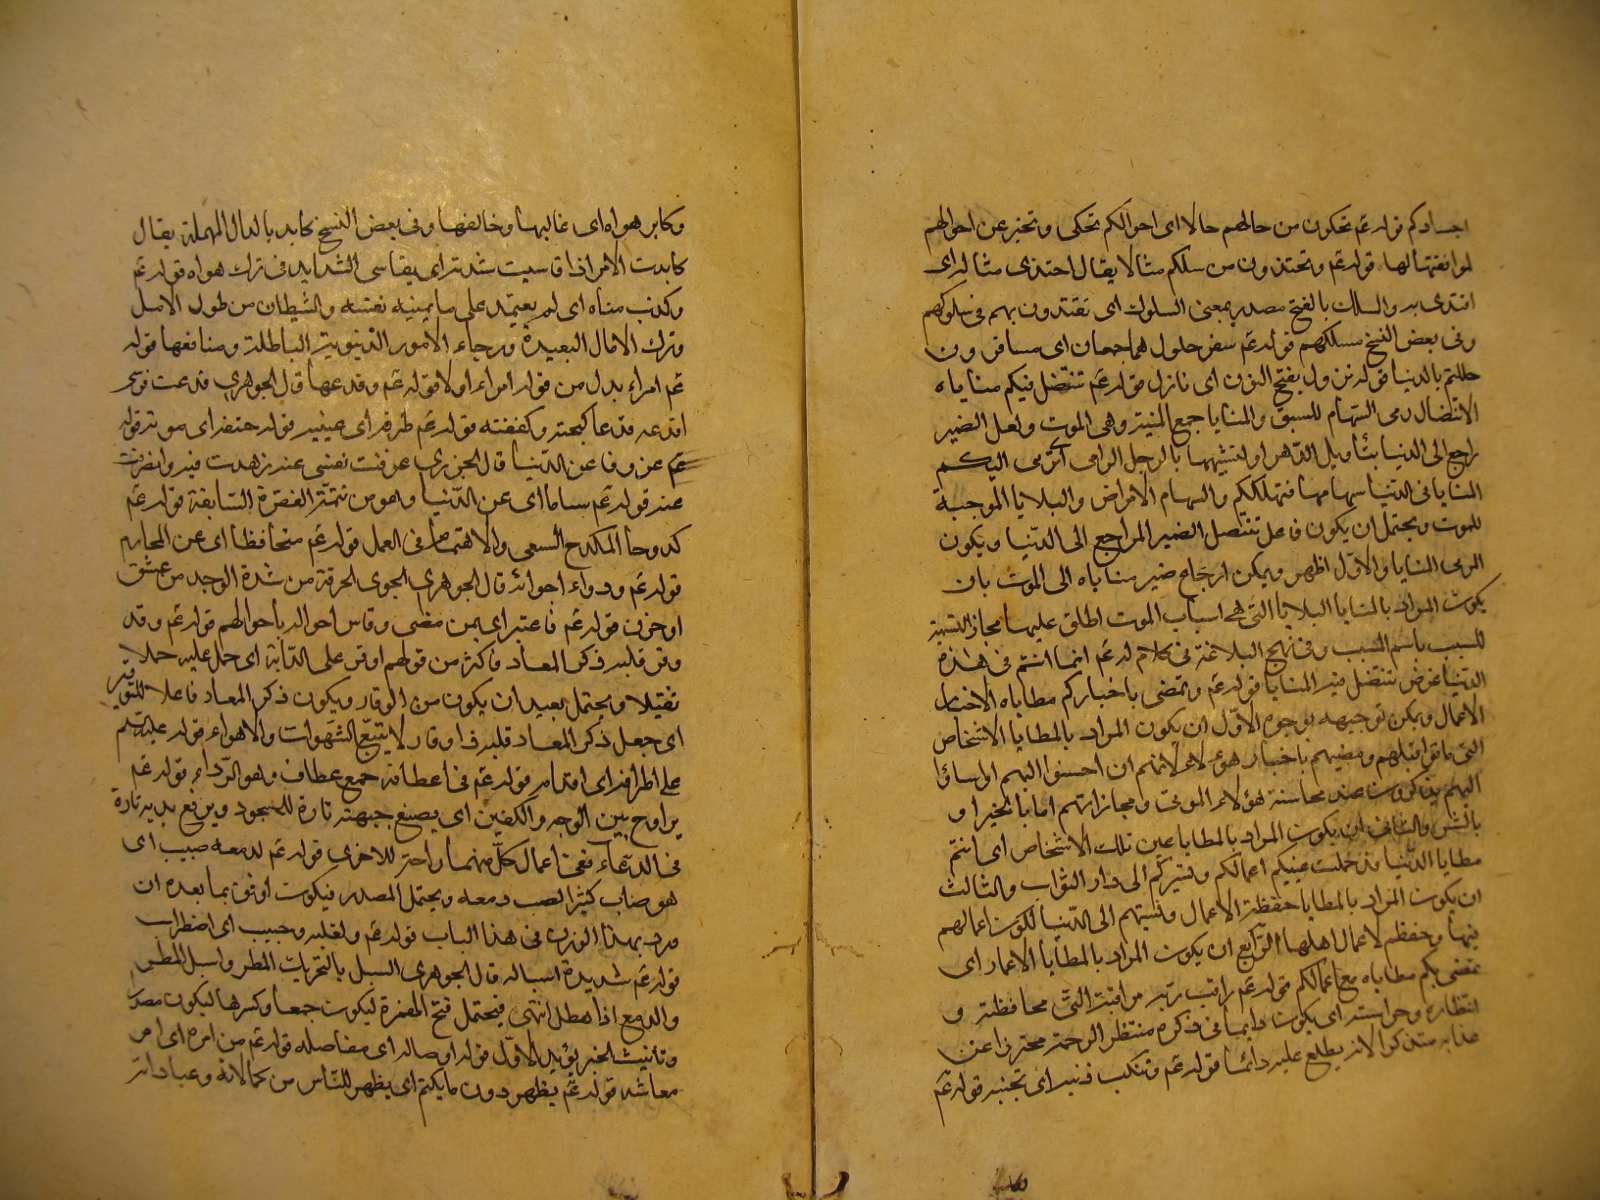 اجسادكم قوله عم تحكون من حالهم حالا اى احوالكم تحكى وتخبر عن احوالهم
لموافقتها لها قوله عم وتحتذون من سلكهم مثالا يقال احتذى مثاله اى
اقتدى به والسلك بالفتح مصدر بمعنى السلوك اى تقتدون بهم فى سلوكهم
وفى بعض النسخ مسلكهم قوله عم سفر حلول هما جمعان اى مسافرون
حللتم بالدنيا قوله نزول بفتح النون اى نازل قوله عم تنتضل فيكم مناياه
الانتضال رمى السهام للسبق والمنايا جمع المنية وهى الموت ولعل الضمير
راجع الى الدنيا بتأويل الدهر او لتشبيهها بالرجل الرامى اى ترمى اليكم
المنايا فى الدنيا سهامها فتهلككم والسهام الامراض والبلايا الموجبة
للموت ويحتمل ان يكون فاعل تنتضل الضمير الراجع الى الدنيا ويكون
المرمى المنايا والاول اظهر ويمكن ارجاع ضمير مناياه الى الموت بان
يكون المراد بالمنايا البلايا التى هى اسباب الموت اطلق عليها مجازا لتسمية
للسبب باسم المسبب وفى نهج البلاغة فى كلام له عم انما انتم فى هذه
الدنيا غرض تنتضل فيه المنايا قوله عم وتمضى باخباركم مطاياه الاخبار
الاعمال ويمكن توجيهه بوجوه الاول ان يكون المراد بالمطايا الاشخاص
التى ماتوا قبلهم ومضيهم باخبار هؤلاء لانهم ان احسنوا اليهم او اساؤا
اليهم يذكرون عند محاسبة هؤلاء الموتى ومجازاتهم اما بالخير او
بالشر والثانى ان يكون المراد بالمطايا عين تلك الاشخاص اى انتم
مطايا الدنيا قد حملت عليكم اعمالكم وتسيركم الى دار الثواب والثالث
ان يكون المراد بالمطايا حفظة الاعمال ونسبتهم الى الدنيا لكون اعمالهم
فيها وحفظهم لاعمال اهلها الرابع ان يكون المراد بالمطايا الاعمار اى
تمضى بكم مطاياه مع اعمالكم قوله عم راقب ربه مراقبة الشئ محافظته و
انتظاره وحراسته اى يكون دايما فى ذكره منتظر الرحمة محترزا عن
عذابه متذكرا لانه يطلع عليه دائما قوله عم وتنكب ذنبه اى تجنبه قوله عم
وكابر هواه اى غالبها وخالفها وفى بعض النسخ كابد بالدال المهملة يقال
كابدت الامر اذا قاسيت شدته اى يقاسى الشدايد فى ترك هواه قوله عم
وكذب مناه اى لم يعتمد على ما يمنيه نفسه والشيطان من طول الامل
وترك الآمال البعيدة ورجاء الامور الدنيوية الباطلة ومنافعها قوله
عم امرأ بدل من قوله امراء اولا قوله عم وقدعها قال الجوهرى قدعت فرسى
اقدعه قدعا كبحته وكففته قوله عم طرفه اى عينيه قوله حتفه اى موته قوله
عم عزوفا عن الدنيا قال الجزرى عزفت نفسى عنه زهدت فيه وانصرفت
عنه قوله عم سأما اى عن الدنيا وهو من تتمة الفقرة السابقة قوله عم
كدوحا الكدح السعى والاهتمام فى العمل قوله عم متحافظا اى عن المحارم
قوله عم ودواء اجوائه قال الجوهرى الجوى الحرقة من شدة الوجد من عشق
او حزن قوله عم فاعتبر اى بمن مضى وقاس احواله باحوالهم قوله عم وقد
وقر قلبه ذكر المعاد فاكثر من قولهم اوقر على الدابة اى حمل عليه حملا
ثقيلا ويحتمل بعيدا ان يكون من الوقار ويكون ذكر المعاد فاعلا للتوقير
اى جعل ذكر المعاد قلبه ذا وقار لا يتبع الشهوات والاهواء قوله عليه السلم
على اطرافه اى اقدامه قوله عم فى اعطافه جمع عطاف وهو الرداء قوله عم
يراوح بين الوجه والكفين اى يضع جبهته تارة للسجود ويرفع يديه تارة
فى الدعاء ففى اعمال كل منهما راحة للاخرى قوله عم لدمعه صبيب اى
هو صاب كثير الصب دمعه ويحتمل المصدر فيكون اوفق بما بعده ان
ورد بهذا الوزن فى هذا الباب قوله عم ولقلبه وجيب اى اضطراب
قوله عم شديدة اسباله قال الجوهرى السبل بالتحريك المطر واسبل المطر
والدمع اذا هطل انتهى فيحتمل فتح الهمزة ليكون جمعا وكسرها ليكون مصدرا
وتأنيث الخبر يؤيد الاول قوله اوصاله اى مفاصله قوله عم من امره اى امر
معاشه قوله عم يظهر دون ما يكتم اى يظهر للناس من كمالاته وعباداته